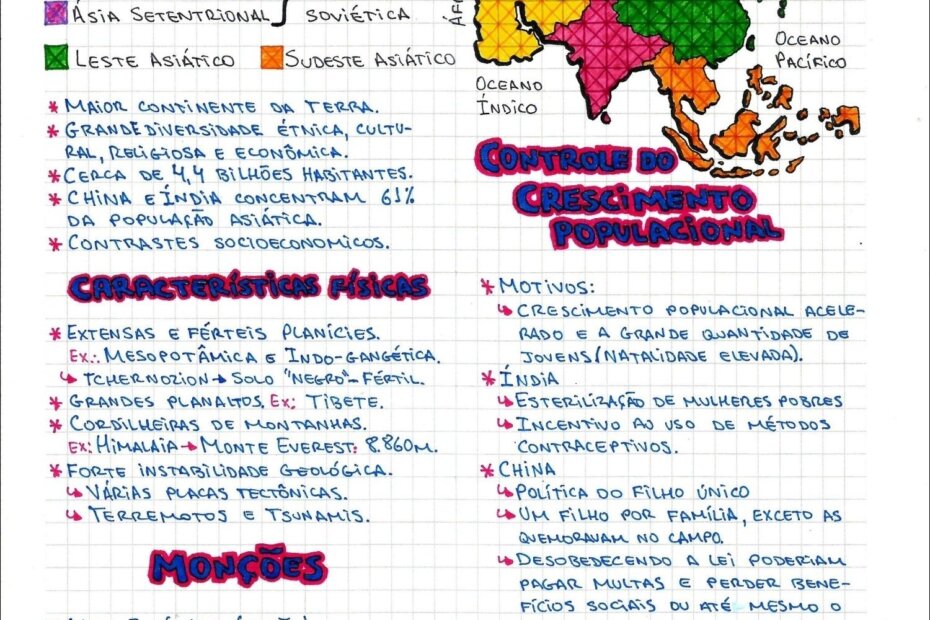 ÁSIA SETENTRIONAL
SOVIÉTICA
LESTE ASIÁTICO
SUDESTE ASIÁTICO
* MAIOR CONTINENTE DA TERRA.
* GRANDE DIVERSIDADE ÉTNICA, CULTU-
RAL, RELIGIOSA E ECONÔMICA.
* CERCA DE 4,4 BILHÕES HABITANTES.
* CHINA E ÍNDIA CONCENTRAM 61%
DA POPULAÇÃO ASIÁTICA.
* CONTRASTES SOCIOECONOMICOS.
CARACTERÍSTICAS FÍSICAS
* EXTENSAS E FÉRTEIS PLANÍCIES.
EX.: MESOPOTÂMICA E INDO-GANGÉTICA.
↳ TCHERNOZION → SOLO "NEGRO"-FÉRTIL.
* GRANDES PLANALTOS. EX: TIBETE.
* CORDILHEIRAS DE MONTANHAS.
EX: HIMALAIA → MONTE EVEREST: 8.860M.
* FORTE INSTABILIDADE GEOLÓGICA.
↳ VÁRIAS PLACAS TECTÔNICAS.
↳ TERREMOTOS E TSUNAMIS.
MONÇÕES
OCEANO
ÍNDICO
OCEANO
PACÍFICO
CONTROLE DO
CRESCIMENTO
POPULACIONAL
* MOTIVOS:
↳ CRESCIMENTO POPULACIONAL ACELE-
RADO E A GRANDE QUANTIDADE DE
JOVENS (NATALIDADE ELEVADA).
* ÍNDIA
↳ ESTERILIZAÇÃO DE MULHERES POBRES
↳ INCENTIVO AO USO DE MÉTODOS
CONTRACEPTIVOS.
* CHINA
↳ POLÍTICA DO FILHO ÚNICO
↳ UM FILHO POR FAMÍLIA, EXCETO AS
QUE MORAVAM NO CAMPO.
↳ DESOBEDECENDO A LEI PODERIAM
PAGAR MULTAS E PERDER BENE-
FÍCIOS SOCIAIS OU ATÉ MESMO O